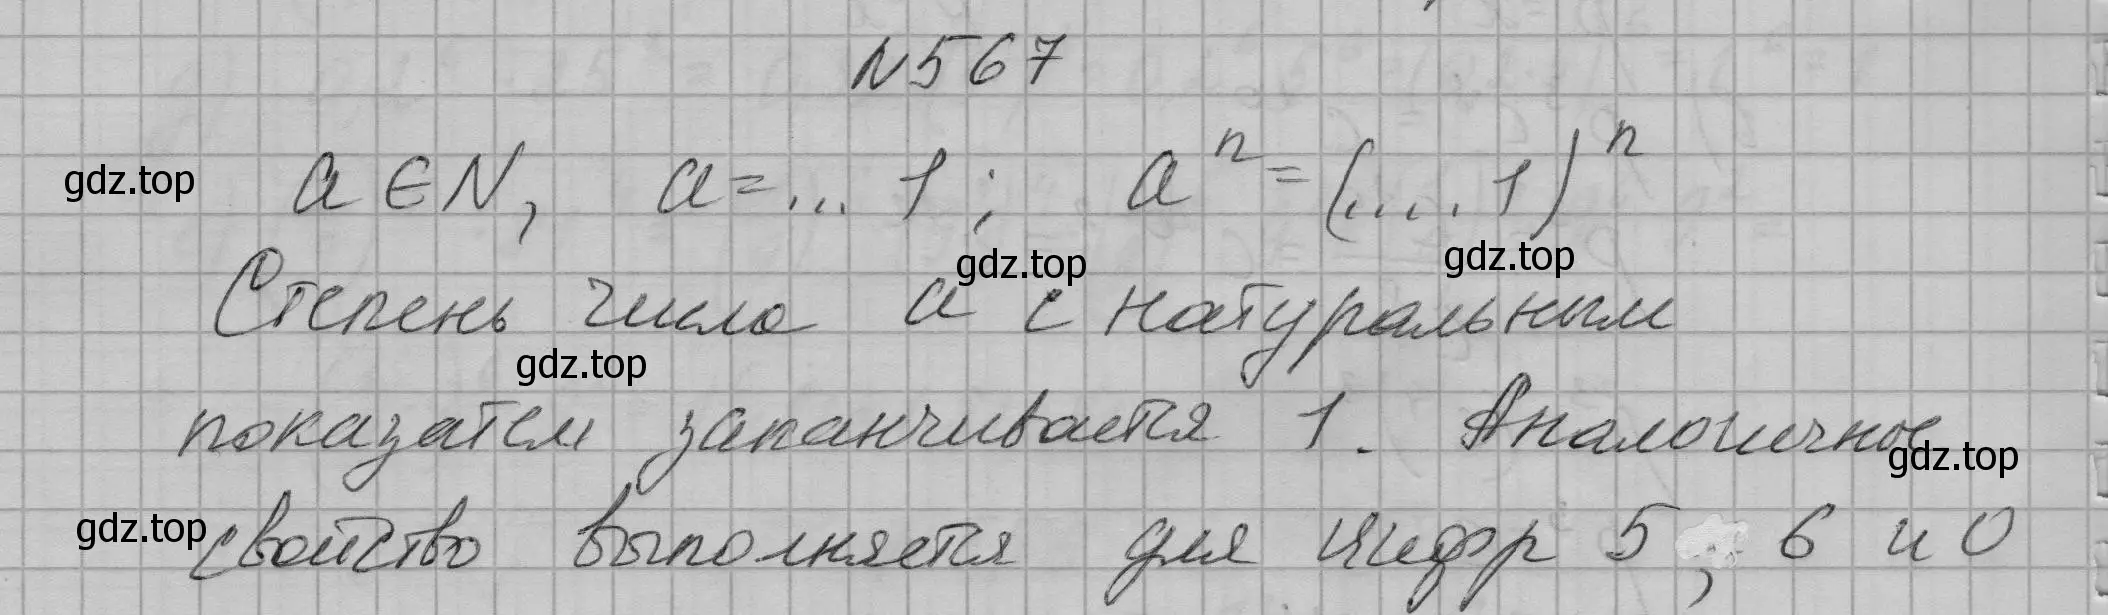 N567
gdz.top a ∈ N, a = ... 1 ; aⁿ = (.... 1)ⁿ
gdz.top gdz.top
Степень числа a с натуральным
gdz.top
показатем заканчивается 1. Аналогичное
gdz.top
gdz.top свойство выполняется для цифр 5, 6 и 0